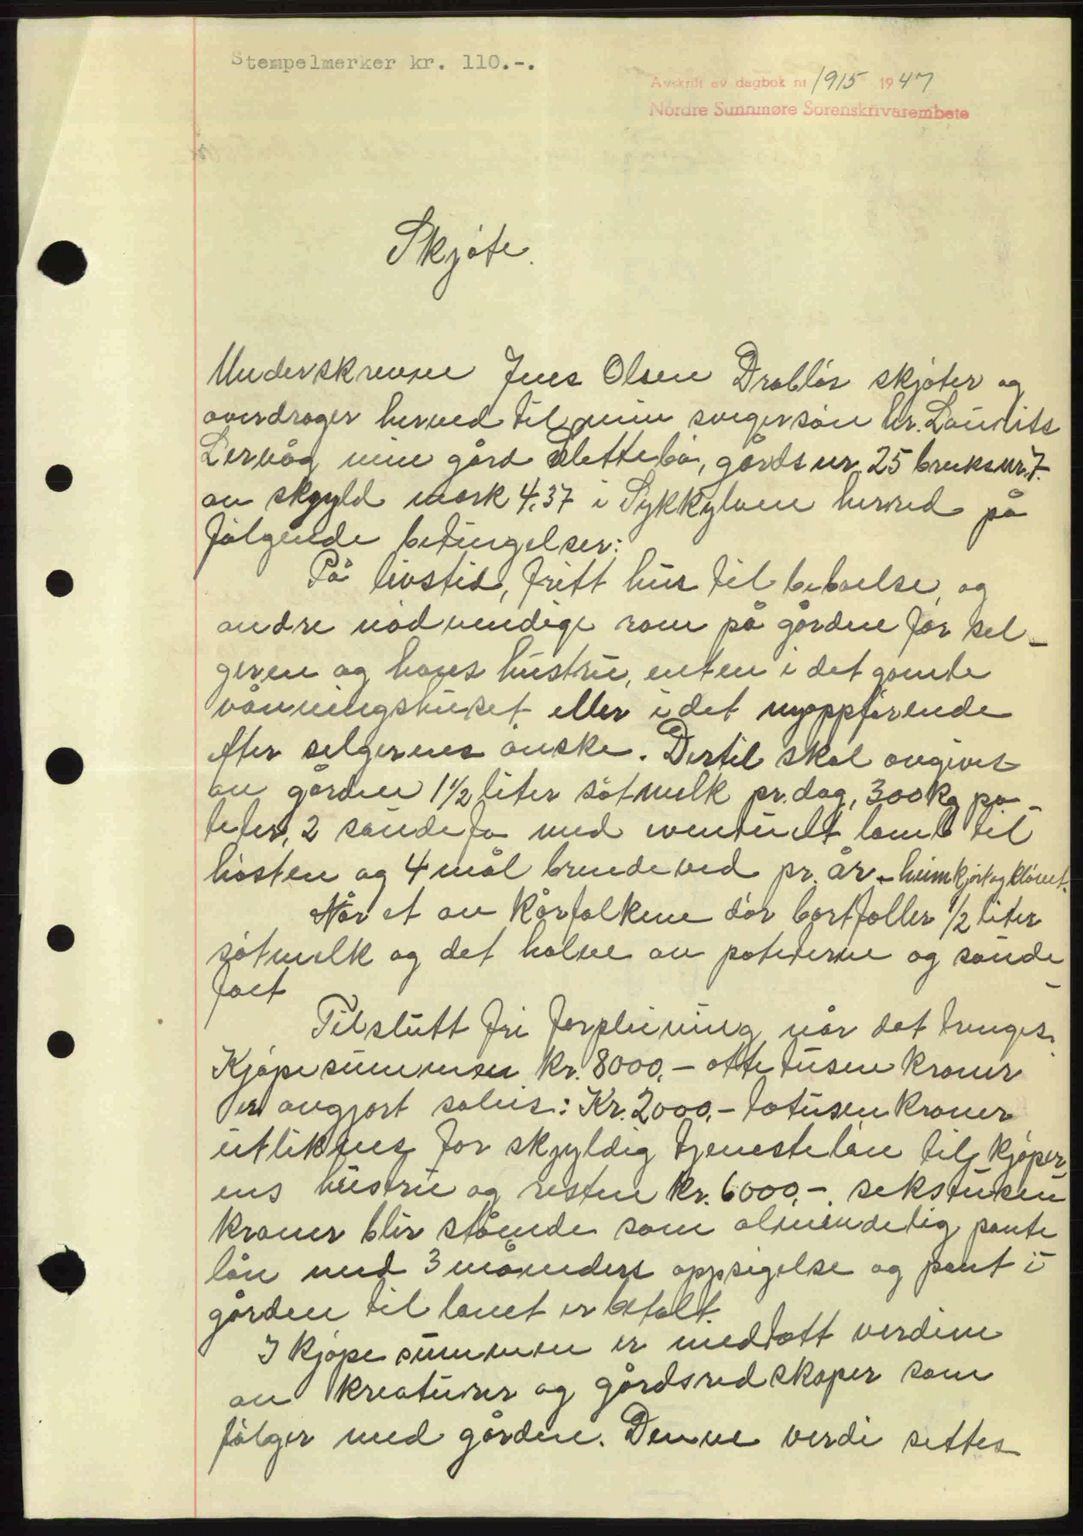 Stempelmerker kr. 110.-.
Avskrift av dagbok nr 1915 1947
Nordre Sunnmøre Sorenskrivarembete
Skjøte.
Underskrevne Jens Olsen Drabløs skjøter og
overdrager herved til min svigersøn hr. Laurits
Lervåg min gård Slettebø, gårds nr. 25 bruksnr. 7.
av skyld mark 4.37 i Sykkylven herred på
følgende betingelser:
På livstid, fritt hus til beboelse, og
andre nødvendige rom på gården for sel-
geren og hans hustru, enten i det gamle
våningshuset eller i det nyoppførende
efter selgernes ønske. Dertil skal avgives
av gården 1½ liter søtmelk pr. dag, 300 kg po-
teter, 2 saudefo med eventuelt lam til
høsten og 4 mål brendeved pr. år - heimkjørt og kløvet.
Når et av kårfolkene dør bortfaller 1/2 liter
søtmelk og det halve av poteterne og saude-
foet
Tilslutt fri forpleining når det trenges.
Kjøpesummen kr. 8000,- otte tusen kroner
er avgjort soleis: Kr. 2000,- totusen kroner
utliknes for skyldig tjenesteløn til kjøper-
ens hustru og resten kr. 6000,-. sekstusen
kroner blir stående som almindelig pante
lån med 3 måneders oppsigelse og pant i
gården til lånet er betalt.
I kjøpesummen er medtatt verdien
av kreaturer og gårdsredskaper som
følger med gården. Denne verdi settes